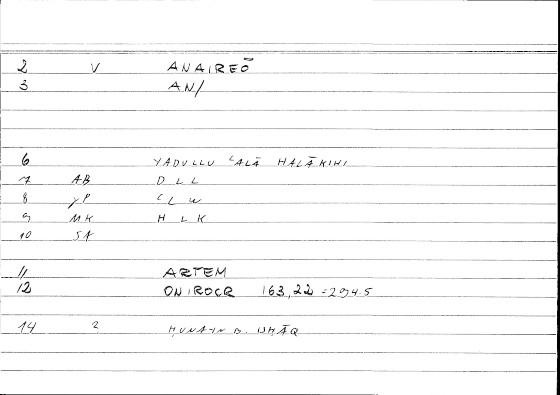 2 V ANAIREŌ
3 AN/
6 YADULLU ʿALĀ HALĀKIHI
7 AB D L L
8 γP ʿ L W
9 MK H L K
10 SA
11 ARTEM
12 ONIROCR 163,22 = 294.5
14 2 ḤUNAYN B. ISḤĀQ